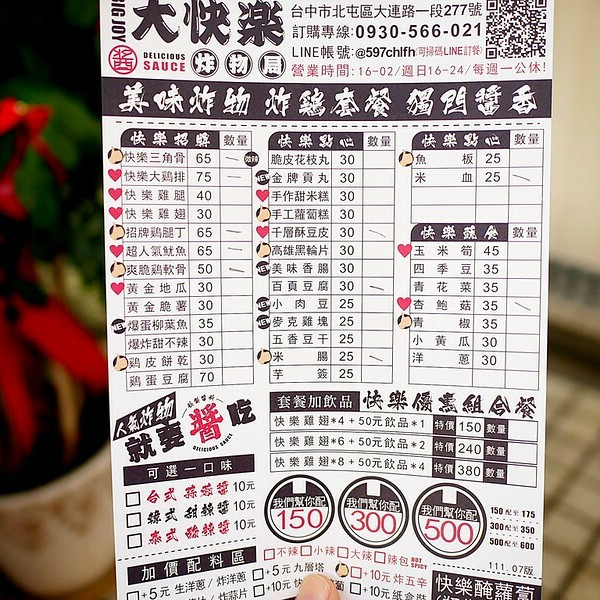 BIG JOY
大快樂
DELICIOUS SAUCE
醬
炸物局
台中市北屯區大連路一段277號
訂購專線:0930-566-021
LINE帳號:@597chlfh(可掃碼LINE訂餐)
營業時間:16-02/週日16-24/每週一公休!
美味炸物 炸鷄套餐 獨門醬香
快樂招牌 數量
快樂三角骨 65
快樂大鷄排 75
快樂雞腿 40
快樂雞翅 30
招牌鷄腿丁 65
超人氣魷魚 65
爽脆鷄軟骨 50
黃金地瓜 30
黃金脆薯 30
NEW 爆蛋柳葉魚 35
爆炸甜不辣 30
鷄皮餅乾 30
鷄蛋豆腐 70
快樂點心 數量
微辣 脆皮花枝丸 30
NEW 金牌貢丸 30
手作甜米糕 30
手工蘿蔔糕 30
千層酥豆皮 30
高雄黑輪片 30
NEW 美味香腸 30
百頁豆腐 30
NEW 小肉豆 25
NEW 麥克雞塊 30
五香豆干 25
米腸 25
芋簽 25
快樂點心 數量
魚板 25
米血 25
快樂蔬食 數量
玉米筍 45
四季豆 35
青花菜 35
杏鮑菇 35
青椒 35
小黃瓜 30
洋蔥 30
人氣炸物
就要醬吃
DELICIOUS SAUCE
套餐加飲品 快樂優惠組合餐
快樂雞翅*4+50元飲品*1 特價 150 數量
快樂雞翅*6+50元飲品*2 特價 240 數量
快樂雞翅*8+50元飲品*4 特價 380 數量
可選一口味
台式 蒜蓉醬 10元
韓式 甜辣醬 10元
泰式 酸辣醬 10元
我們幫你配 150
我們幫你配 300
我們幫你配 500
150 配至 175
300 配至 350
500 配至 600
111.07版
不辣 小辣 大辣 辣包 HOT SPICY
加價配料區
+5元 生洋蔥/炸洋蔥
+5元 九層塔
+10元 炸五辛
炸蒜片
+10元
+10元 紙盒裝
快樂醃蘿蔔